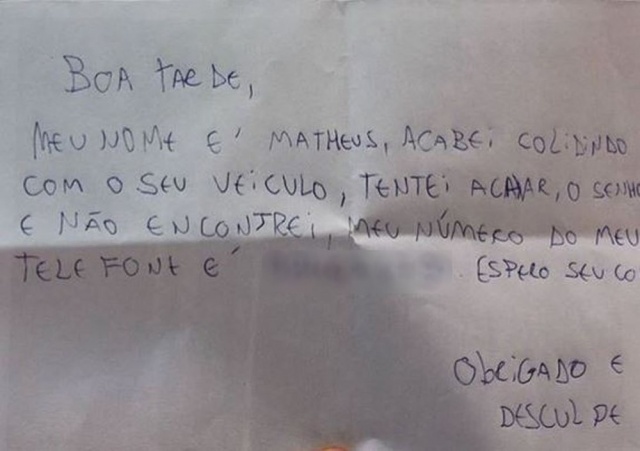 BOA TARDE,
MEU NOME E' MATHEUS, ACABEI COLIDINDO
COM O SEU VEICULO, TENTEI ACHAR, O SENHO
E NÃO ENCONTREI, MEU NÚMERO DO MEU
TELEFONE E' ESPERO SEU CO
OBRIGADO E
DESCULPE